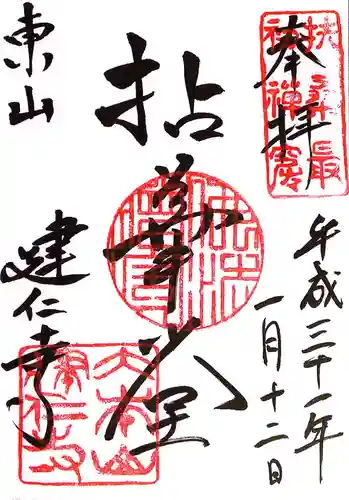 奉拝
扶桑最
初禅窟
平成三十一年
一月十二日
拈華堂
大本山
建仁寺
東山
建仁寺